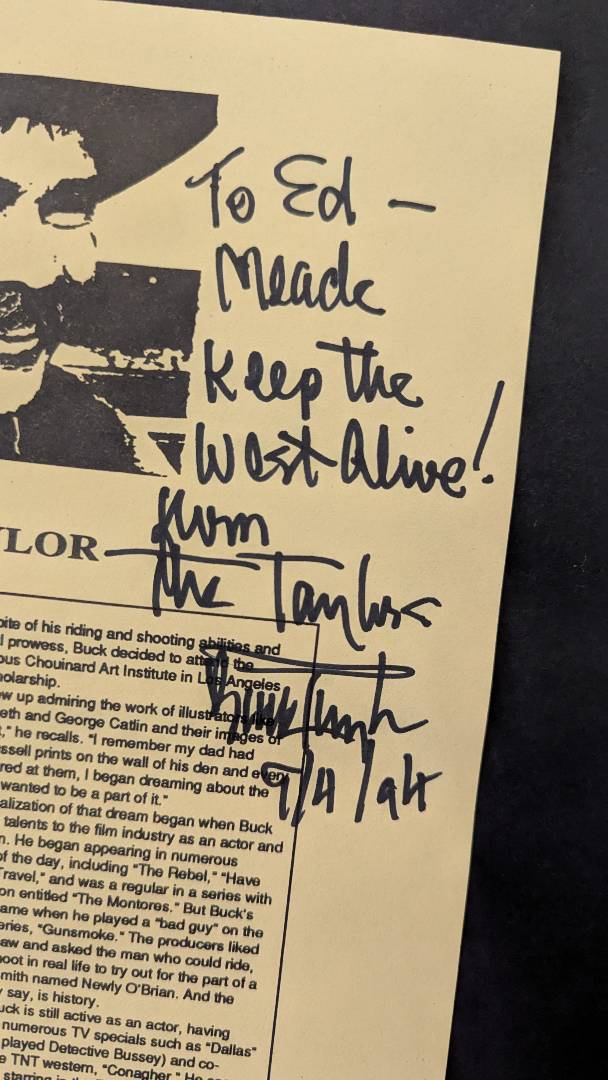 To Ed —
Meade
Keep the
West Alive!
from
The Taylors
Buck Taylor
9/4/94
YLOR
pite of his riding and shooting abilities and
l prowess, Buck decided to attend the
ous Chouinard Art Institute in Los Angeles
holarship.
ew up admiring the work of illustrators like
eth and George Catlin and their images of
t," he recalls. "I remember my dad had
ssell prints on the wall of his den and every
red at them, I began dreaming about the
wanted to be a part of it."
alization of that dream began when Buck
talents to the film industry as an actor and
n. He began appearing in numerous
of the day, including "The Rebel," "Have
Travel," and was a regular in a series with
on entitled "The Montores." But Buck's
ame when he played a "bad guy" on the
eries, "Gunsmoke." The producers liked
aw and asked the man who could ride,
hoot in real life to try out for the part of a
mith named Newly O'Brian. And the
y say, is history.
uck is still active as an actor, having
numerous TV specials such as "Dallas"
played Detective Bussey) and co-
e TNT western, "Conagher." He
starring in the